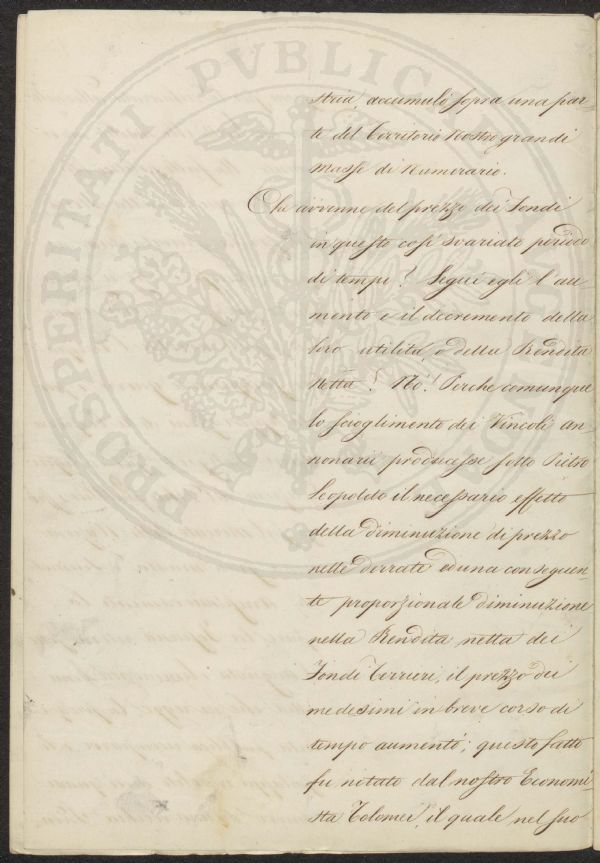 stria, accumulò sopra una par-
te del Territorio Nostro grandi
Masse di Numerario.
Che avvenne del prezzo dei Fondi
in questo così svariato periodo
di tempi? Seguì egli l'au-
mento e il decremento della
loro utilità, o della Rendita
Netta? No! Perche comunque
lo scioglimento dei Vincoli an-
nonarii producesse sotto Pietro
Leopoldo il necessario effetto
della diminuzione di prezzo
nelle derrate ed una conseguen-
te proporzionale diminuzione
nella Rendita netta dei
Fondi Terrieri, il prezzo dei
medesimi in breve corso di
tempo aumentò; questo fatto
fu notato dal nostro Economi-
sta Tolomei, il quale nel suo
PROSPERITATI PVBLICAE